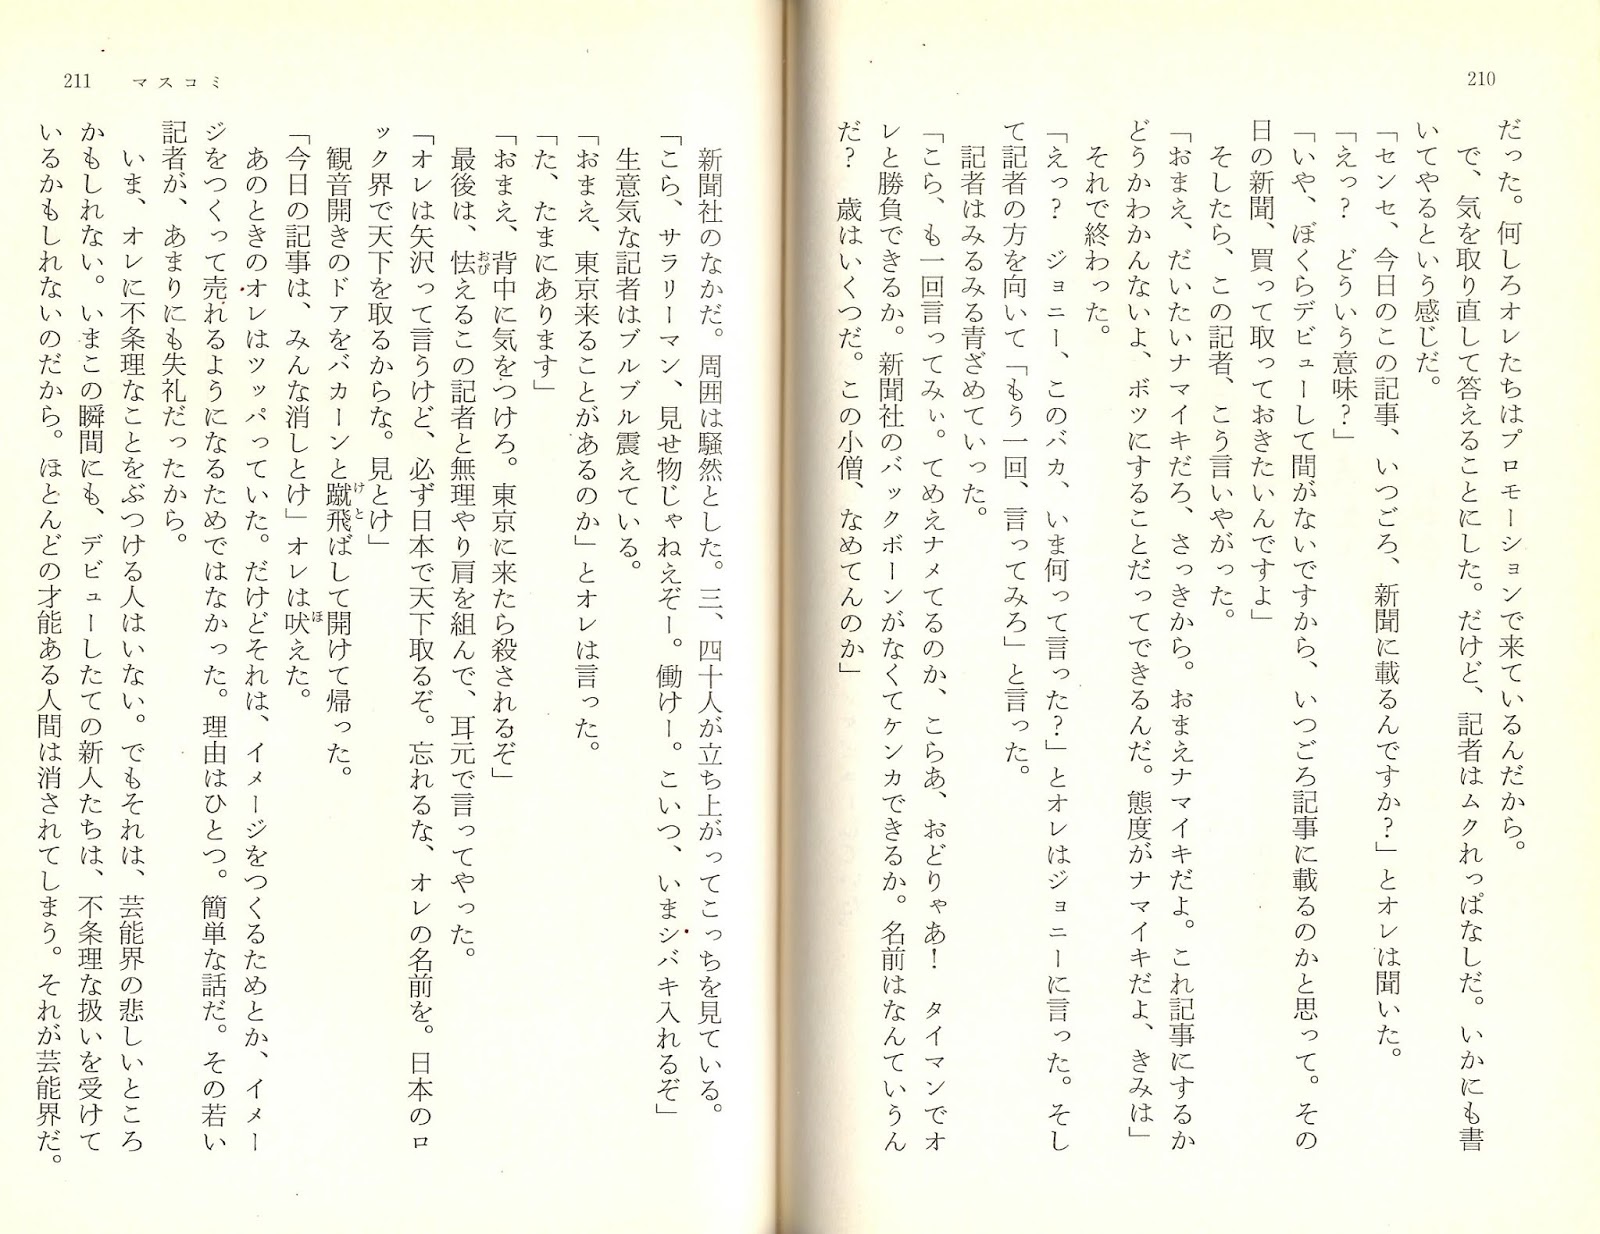 210
だった。何しろオレたちはプロモーションで来ているんだから。
で、気を取り直して答えることにした。だけど、記者はムクれっぱなしだ。いかにも書
いてやるという感じだ。
「センセ、今日のこの記事、いつごろ、新聞に載るんですか？」とオレは聞いた。
「えっ？　どういう意味？」
「いや、ぼくらデビューして間がないですから、いつごろ記事に載るのかと思って。その
日の新聞、買って取っておきたいんですよ」
そしたら、この記者、こう言いやがった。
「おまえ、だいたいナマイキだろ、さっきから。おまえナマイキだよ。これ記事にするか
どうかわかんないよ、ボツにすることだってできるんだ。態度がナマイキだよ、きみは」
それで終わった。
「えっ？　ジョニー、このバカ、いま何って言った？」とオレはジョニーに言った。そし
て記者の方を向いて「もう一回、言ってみろ」と言った。
記者はみるみる青ざめていった。
「こら、も一回言ってみぃ。てめえナメてるのか、こらあ、おどりゃあ！　タイマンでオ
レと勝負できるか。新聞社のバックボーンがなくてケンカできるか。名前はなんていうん
だ？　歳はいくつだ。この小僧、なめてんのか」
211　マスコミ
新聞社のなかだ。周囲は騒然とした。三、四十人が立ち上がってこっちを見ている。
「こら、サラリーマン、見せ物じゃねえぞー。働けー。こいつ、いまシバキ入れるぞ」
生意気な記者はブルブル震えている。
「おまえ、東京来ることがあるのか」とオレは言った。
「た、たまにあります」
「おまえ、背中に気をつけろ。東京に来たら殺されるぞ」
最後は、怯おびえるこの記者と無理やり肩を組んで、耳元で言ってやった。
「オレは矢沢って言うけど、必ず日本で天下取るぞ。忘れるな、オレの名前を。日本のロ
ック界で天下を取るからな。見とけ」
観音開きのドアをバカーンと蹴飛けとばして開けて帰った。
「今日の記事は、みんな消しとけ」オレは吠ほえた。
あのときのオレはツッパっていた。だけどそれは、イメージをつくるためとか、イメー
ジをつくって売れるようになるためではなかった。理由はひとつ。簡単な話だ。その若い
記者が、あまりにも失礼だったから。
いま、オレに不条理なことをぶつける人はいない。でもそれは、芸能界の悲しいところ
かもしれない。いまこの瞬間にも、デビューしたての新人たちは、不条理な扱いを受けて
いるかもしれないのだから。ほとんどの才能ある人間は消されてしまう。それが芸能界だ。